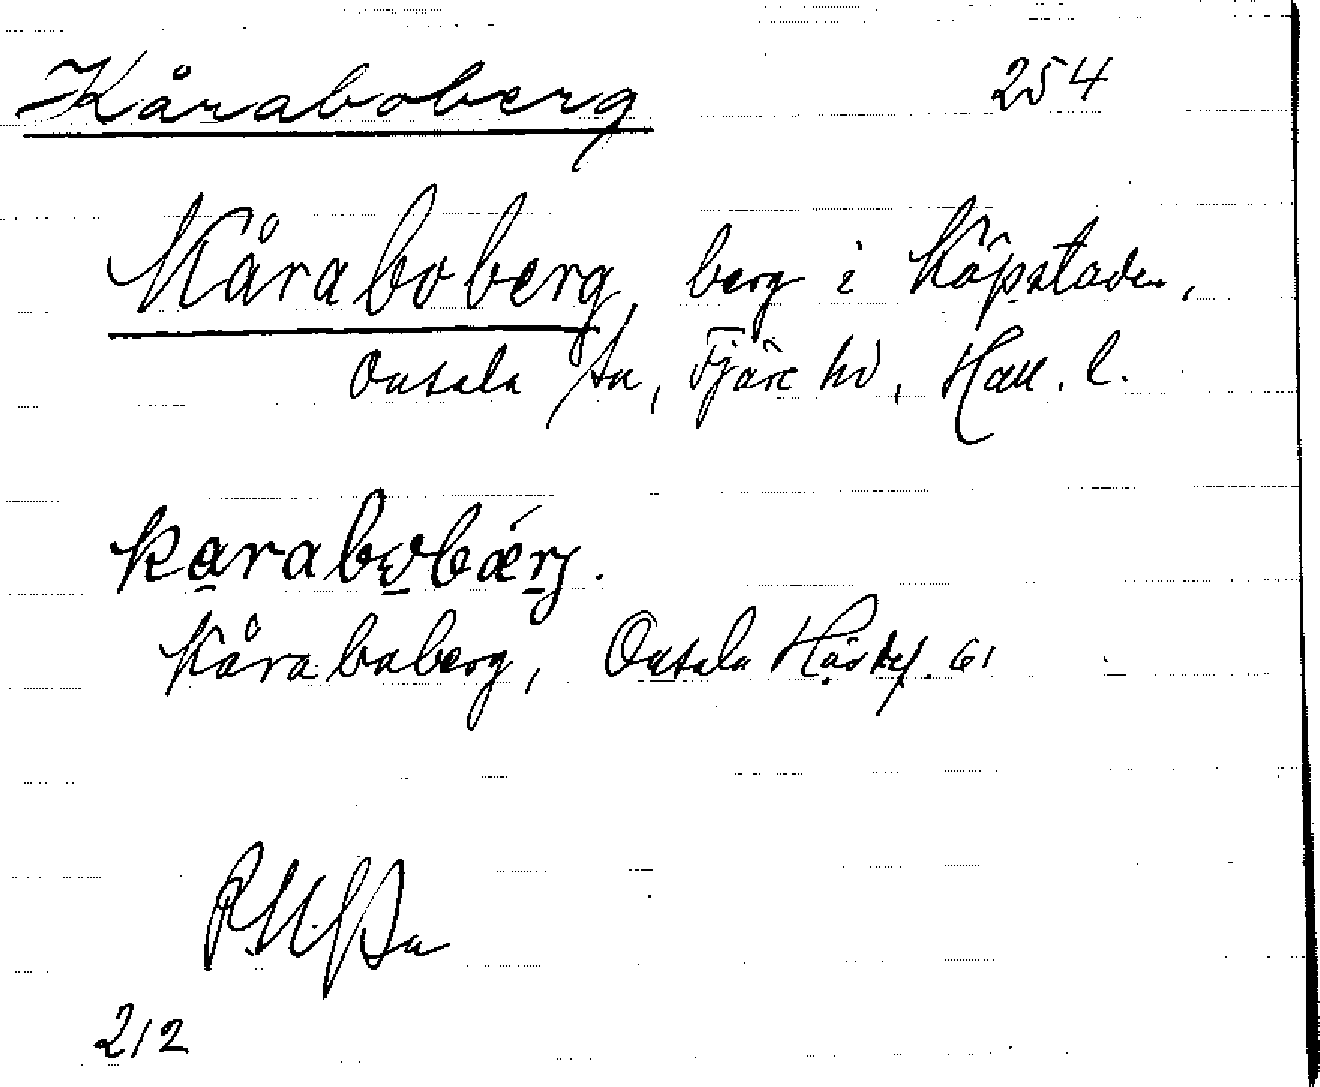 Kåraboberg 254
Kåraboberg, berg i Köpstaden,
Onsala sn, Fjäre hd, Hall. l.
karabobærj.
Kåraboberg, Onsala Hdskf. 61
212